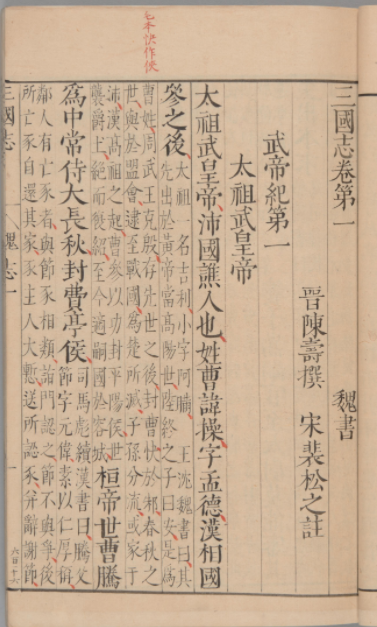 三國志卷第一
魏書
晉陳壽撰 宋裴松之註
武帝紀第一
太祖武皇帝
太祖武皇帝沛國譙人也姓曹諱操字孟德漢相國
參之後太祖一名吉利小字阿瞞 王沈魏書曰其
先出於黃帝當高陽世陸終之子曰安是為
曹姓周武王克殷存先世之後封曹俠於邾春秋之
世與於盟會逮至戰國為楚所滅子孫分流或家于
沛漢高祖之起曹參以功封平陽侯世
襲爵土絕而復紹至今適嗣國於容城
桓帝世曹騰
為中常侍大長秋封費亭侯司馬彪續漢書曰騰父
節字元偉素以仁厚稱
鄰人有亡豕者與節豕相類詣門認之節不與爭後
所亡豕自還其家豕主人大慙送所認豕并辭謝節
三國志
魏志一